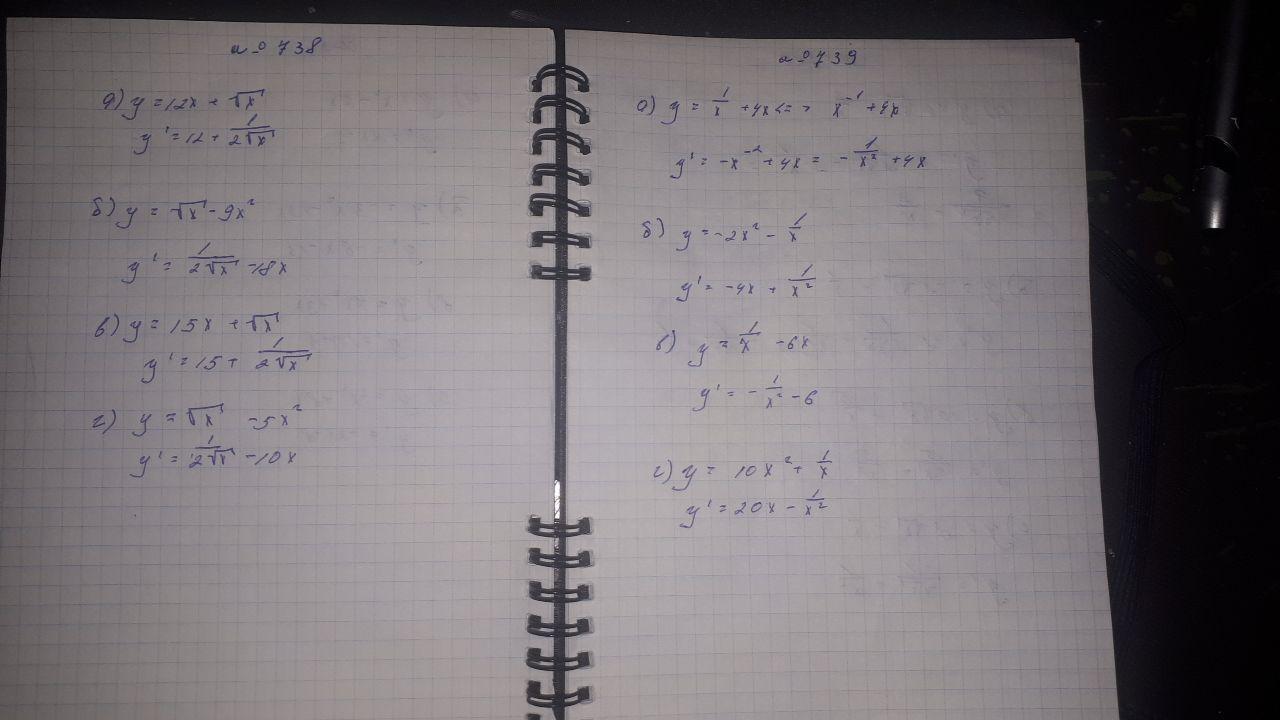 №738
а) y = 12x + √x
y' = 12 + 1/(2√x)
б) y = √x - 9x²
y' = 1/(2√x) - 18x
в) y = 15x + √x
y' = 15 + 1/(2√x)
г) y = √x - 5x²
y' = 1/(2√x) - 10x
№739
а) y = 1/x + 4x <=> x⁻¹ + 4x
y' = -x⁻² + 4x = -1/x² + 4x
б) y = -2x² - 1/x
y' = -4x + 1/x²
в) y = 1/x - 6x
y' = -1/x² - 6
г) y = 10x² + 1/x
y' = 20x - 1/x²